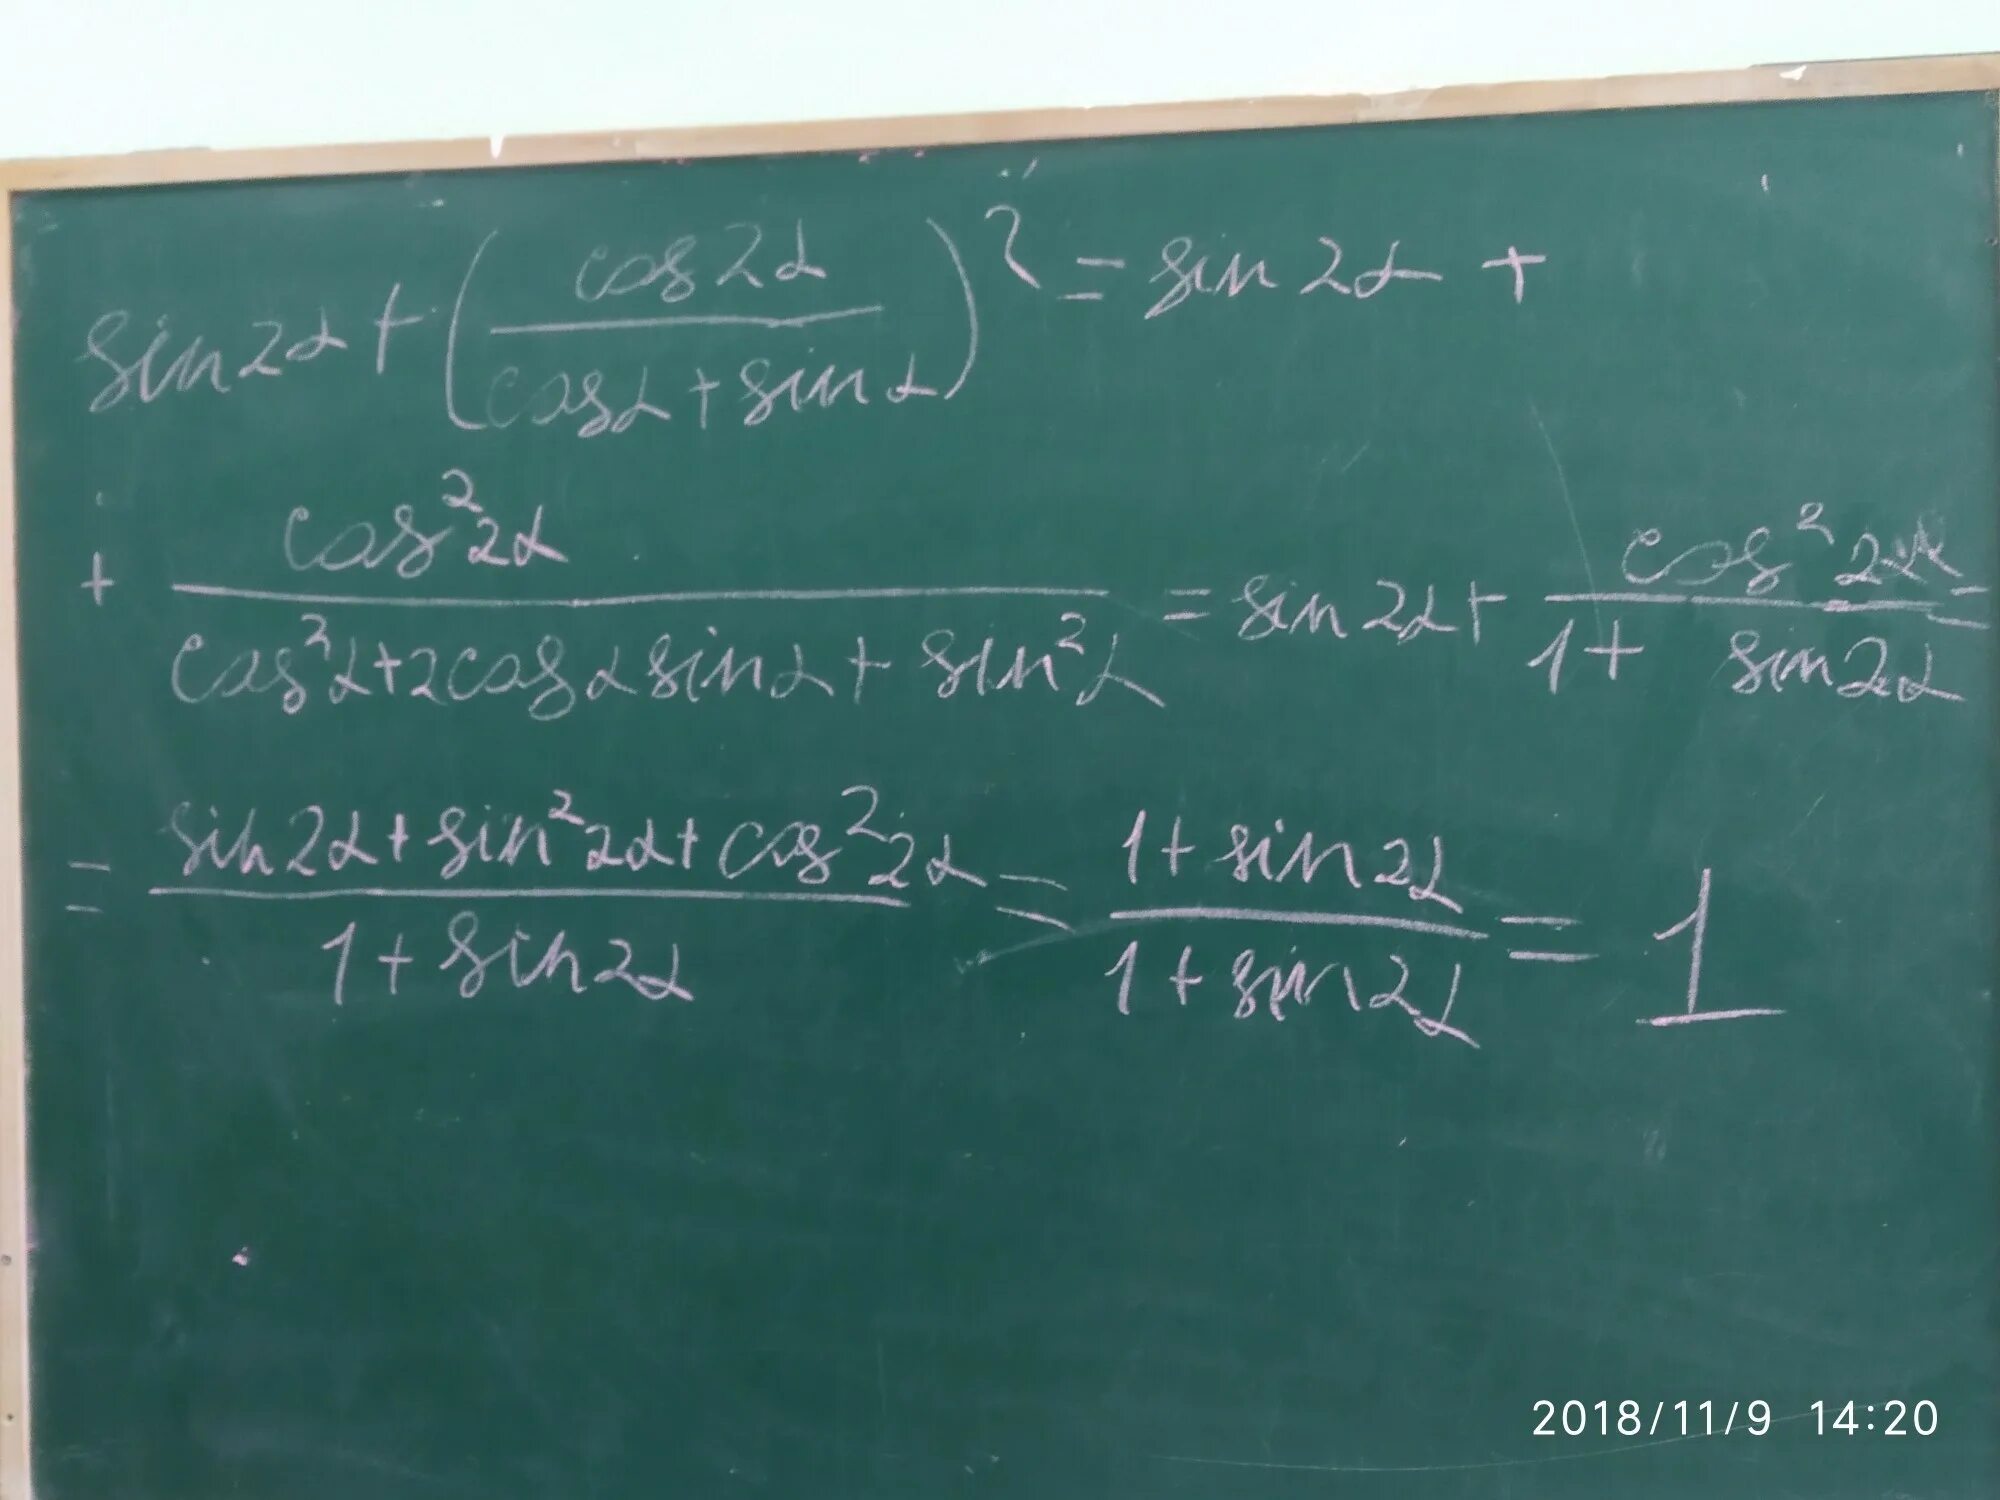 sin2α + (cos2α / (cosα + sinα))² = sin2α +
+ cos²2α / (cos²α + 2cosα sinα + sin²α) = sin2α + cos²2α / (1 + sin2α)
= (sin2α + sin²2α + cos²2α) / (1 + sin2α) = (1 + sin2α) / (1 + sin2α) = 1
2018/11/9 14:20